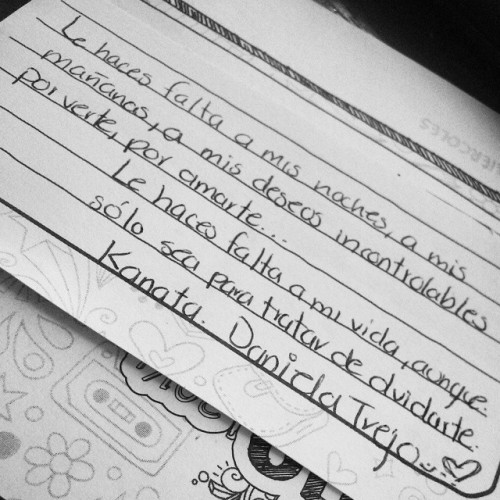 Le haces falta a mis noches, a mis
mañanas, a mis deseos incontrolables
por verte, por amarte...
Le haces falta a mi vida, aunque
sólo sea para tratar de olvidarte.
Kanata. Daniela Trejo
MIERCOLES